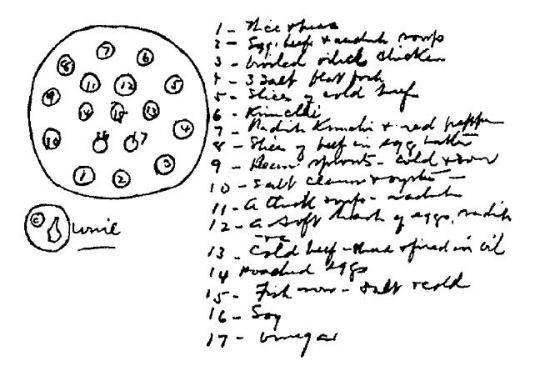 7 6
8 11 12 5
9 14 15 13 4
10 16 17
1 2 3
wine
1 - Rice &
2 - Egg, beef & radish soup
3 - boiled whole chicken
4 - 3 Salt flat fish
5 - Slices of cold beef
6 - Kimchi
7 - Radish Kimchi & red pepper
8 - Slices of beef in egg batter
9 - Bean sprouts - cold & sour
10 - Salt clams & oysters -
11 - A thick soup - radish
12 - A soft hash of eggs, radish
13 - Cold beef - & fried in oil
14 Poached eggs
15 - Fish roe - salt & cold
16 - Soy
17 - Vinegar